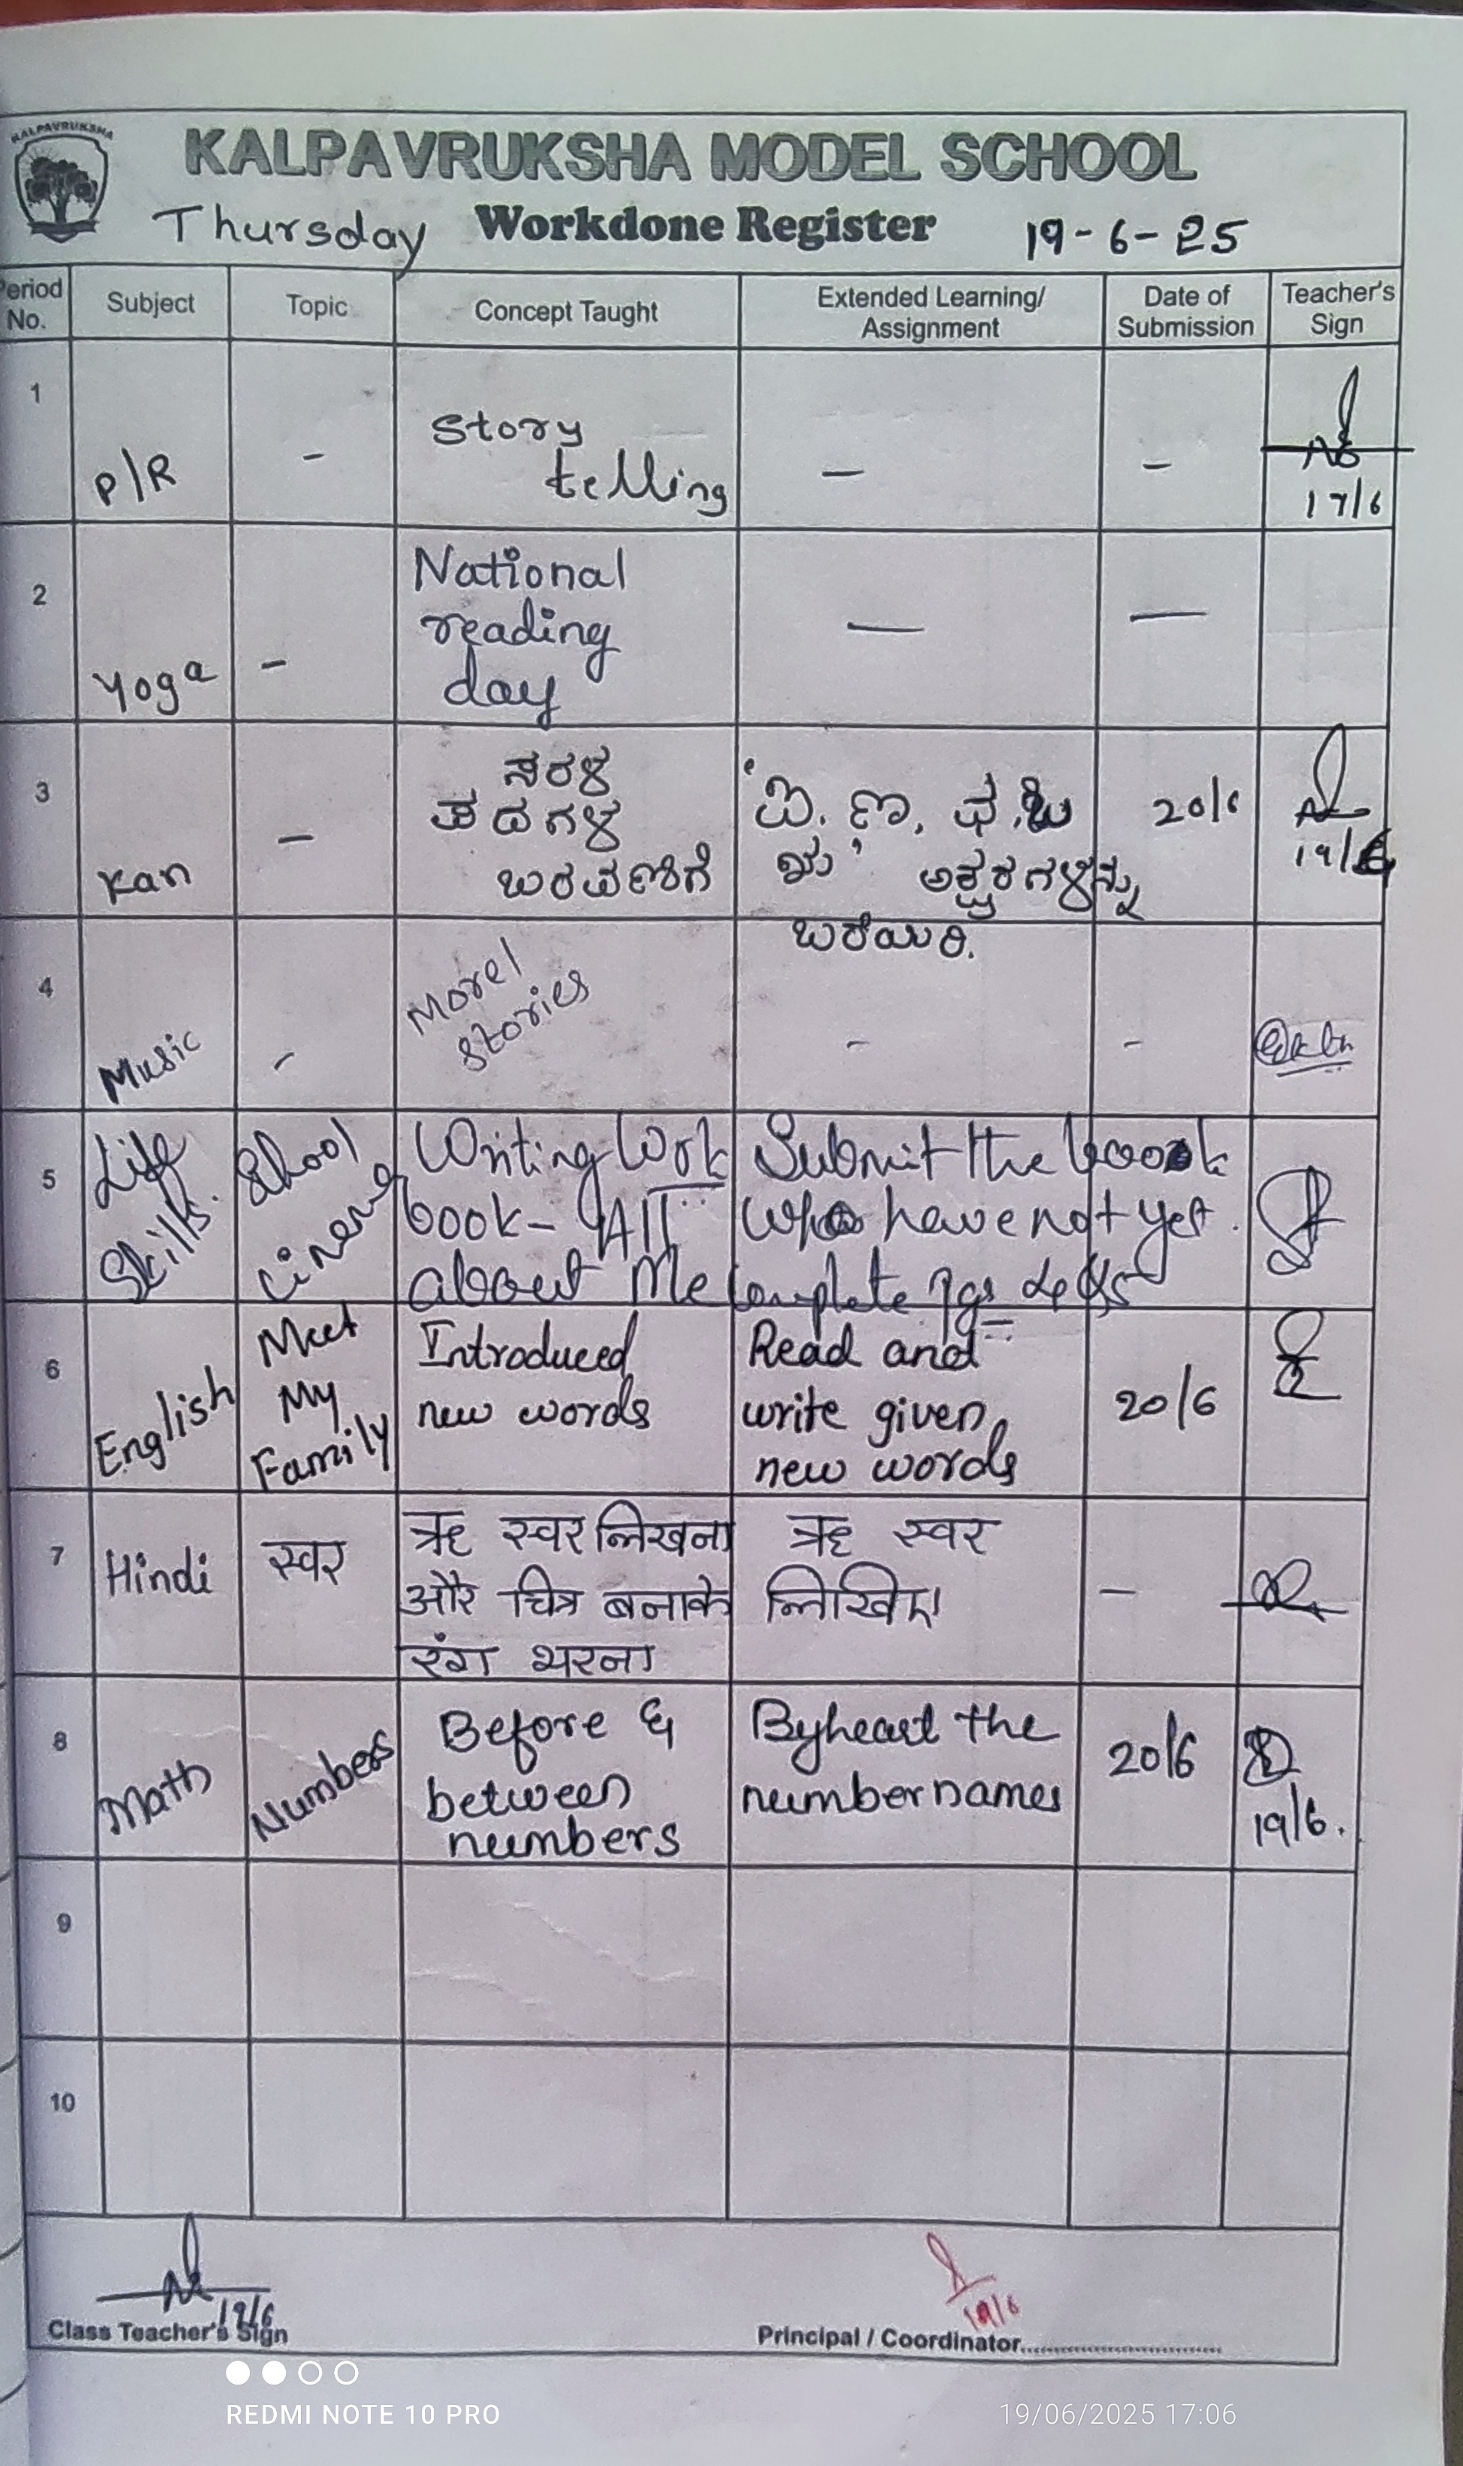 KALPAVRUKSHA
KALPAVRUKSHA MODEL SCHOOL
Thursday Workdone Register 19-6-25
Period No. Subject Topic Concept Taught Extended Learning/ Assignment Date of Submission Teacher's Sign
1 P/R - Story telling — - 17/6
2 Yoga - National reading day — —
3 Kan - ಸರಳ ಪದಗಳ ಬರವಣಿಗೆ ಅಕ್ಷರಗಳನ್ನು ಬರೆಯಿರಿ. 20/6 19/6
4 Music - Morel stories - -
5 Life Skills. School Cinema Writing Work book- All about Me Submit the book who have not yet. Complete Pgs 4&5
6 English Meet My Family Introduced new words Read and write given new words 20/6
7 Hindi स्वर ऋ स्वर लिखना और चित्र बनाके रंग भरना ऋ स्वर लिखिए। -
8 Math Numbers Before & between numbers Byheart the number names 20/6 19/6.
9
10
19/6 19/6
Class Teacher's Sign Principal / Coordinator
REDMI NOTE 10 PRO 19/06/2025 17:06